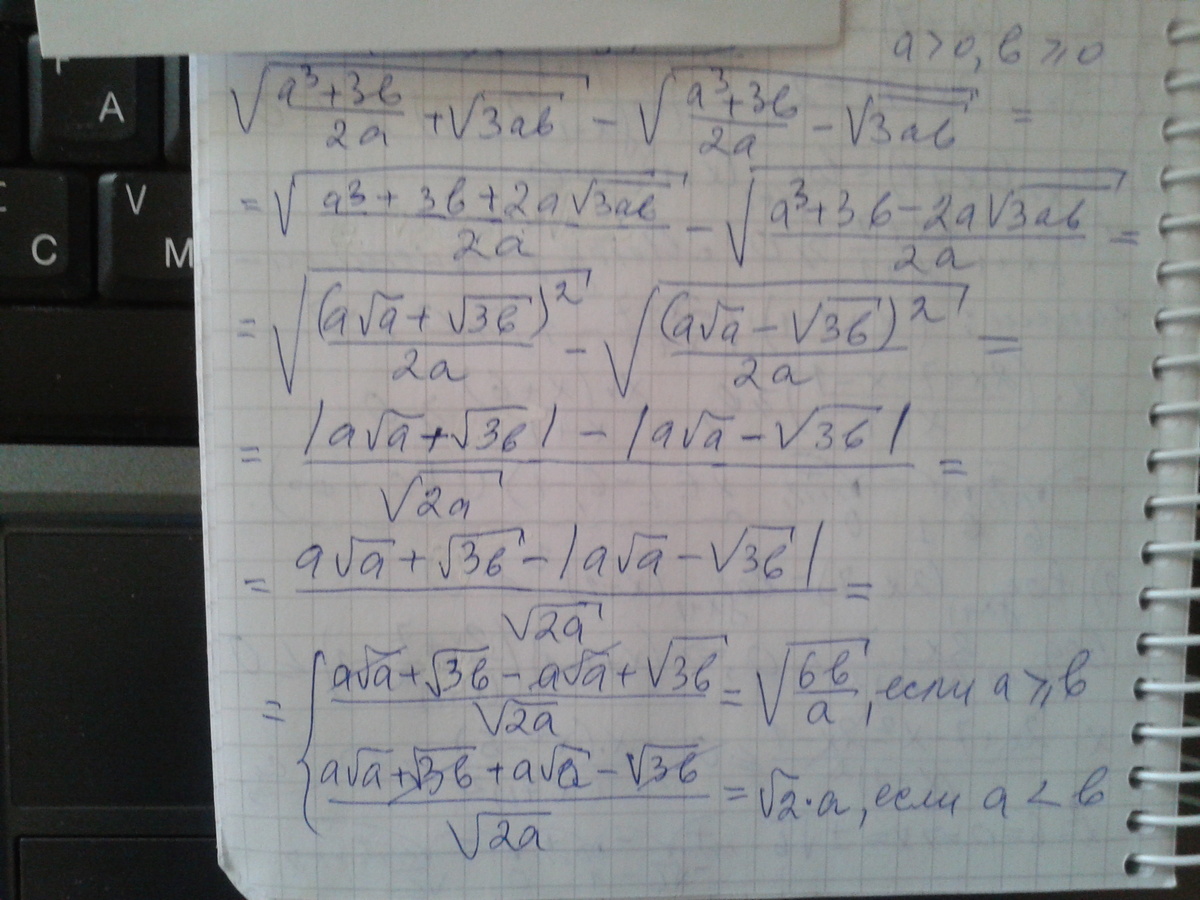 a>0, b⩾0
√((a³+3b)/(2a) + √(3ab)) − √((a³+3b)/(2a) − √(3ab)) =
= √((a³+3b+2a√(3ab))/(2a)) − √((a³+3b−2a√(3ab))/(2a)) =
= √((a√a+√(3b))²/(2a)) − √((a√a−√(3b))²/(2a)) =
= (|a√a+√(3b)| − |a√a−√(3b)|)/√(2a) =
= (a√a+√(3b)−|a√a−√(3b)|)/√(2a) =
= { (a√a+√(3b)−a√a+√(3b))/√(2a) = √(6b/a), если a⩾b
(a√a+√(3b)+a√a−√(3b))/√(2a) = √2·a, если a<b
A
C
V
M